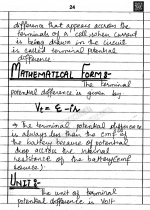 24
difference that appears across the
terminals of a cell when current
is being drawn in the circuit
is called terminal potential
difference
MATHEMATICAL FORM:-
The terminal
potential difference is given by
Vt = ε - Ir
→ the terminal potential difference
is always less than the emf of
the battery because of potential
drop across the internal
resistance of the battery (emf
source)
UNIT:-
The unit of terminal
potential difference is Volt